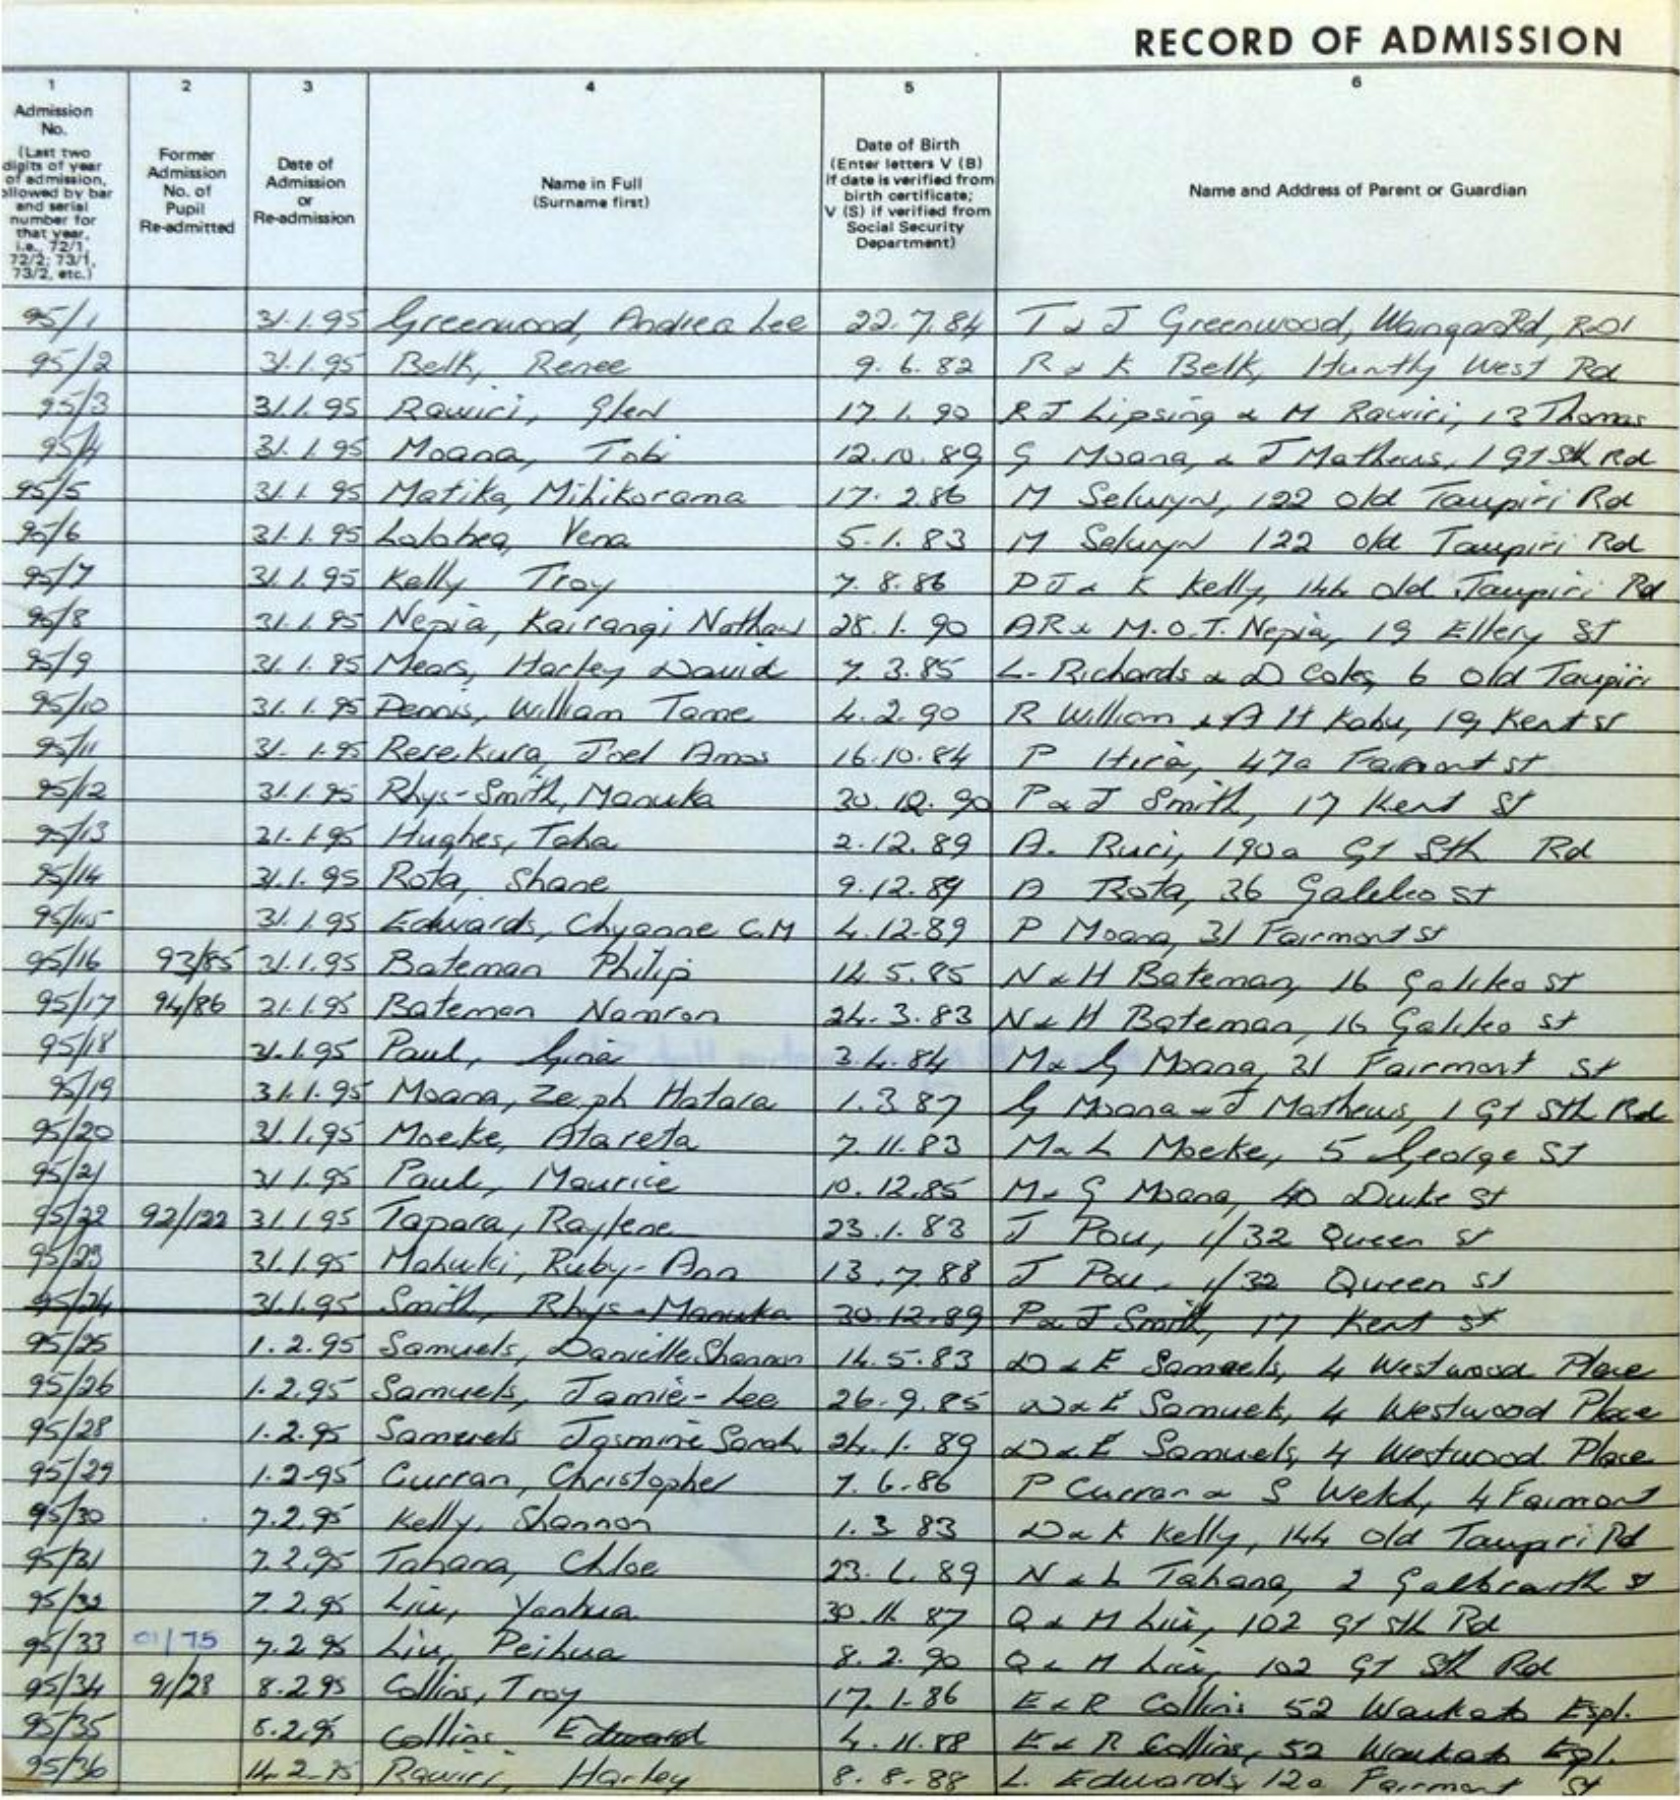 RECORD OF ADMISSION
1 2 3 4 5 6
Admission No. (Last two digits of year of admission, followed by bar and serial number for that year, i.e., 72/1, 72/2; 73/1, 73/2, etc.)
Former Admission No. of Pupil Re-admitted
Date of Admission or Re-admission
Name in Full (Surname first)
Date of Birth (Enter letters V (B) if date is verified from birth certificate; V (S) if verified from Social Security Department)
Name and Address of Parent or Guardian
95/1 31.1.95 Greenwood, Andrea Lee 22.7.84 T & J Greenwood, Rd, RD1
95/2 31.1.95 Belk, Renee 9.6.82 R & K Belk, Huntly West Rd
95/3 31.1.95 Rawiri, Glen 17.1.90 RJ Lipsing & M Rawiri, 13 Thomas
95/4 31.1.95 Moana, Tobi 12.10.89 G Moana, & J Mathews, 1 GT Sth Rd
95/5 31.1.95 Matika, Mihikorama 17.2.86 M Selwyn, 122 Old Taupiri Rd
95/6 31.1.95 Lolohea, Vena 5.1.83 M Selwyn 122 old Taupiri Rd
95/7 31.1.95 Kelly Troy 7.8.86 DJ & K Kelly, 144 old Taupiri Rd
95/8 31.1.95 Nepia, Kairangi Nathan 28.1.90 AR & M.O.T. Nepia, 19 Ellery St
95/9 31.1.95 Mears, Harley David 7.3.85 L. Richards & D Coles, 6 Old Taupiri
95/10 31.1.95 Dennis, William Tame 4.2.90 R William & A H Kahu, 19 Kent St
95/11 31.1.95 Rerekura, Joel Amos 16.10.84 P Hira, 47a Fairmont st
95/12 31.1.95 Rhys-Smith, Manuka 30.12.90 P & J Smith, 17 Kent St
95/13 31.1.95 Hughes, Taha 2.12.89 A. Ruri, 190a GT Sth Rd
95/14 31.1.95 Rota, Shane 9.12.89 A Rota, 36 Galileo St
95/15 31.1.95 Edwards, Chyanne C.M 4.12.89 P Moana, 31 Fairmont St
95/16 93/85 31.1.95 Bateman Philip 14.5.85 N & H Bateman, 16 Galileo St
95/17 94/86 31.1.95 Bateman Namron 24.3.83 N & H Bateman, 16 Galileo St
95/18 31.1.95 Paul, Gina 3.4.84 M & G Moana, 31 Fairmont St
95/19 31.1.95 Moana, Zeph Hatara 1.3 87 G Moana & J Mathews, 1 GT Sth Rd
95/20 31.1.95 Moeke, Atareta 7.11.83 M & L Moeke, 5 George St
95/21 31.1.95 Paul, Maurice 10.12.85 M & G Moana, 40 Duke St
95/22 92/122 31.1.95 Tapara, Raylene 23.1.83 J Pou, 1/32 Queen St
95/23 31.1.95 Mahuki, Ruby-Ann 13.7.88 J Pou 1/32 Queen St
95/24 31.1.95 Smith, Rhys-Manuka 30.12.89 P & J Smith, 17 Kent St
95/25 1.2.95 Samuels, Danielle Shannon 14.5.83 D & E Samuels, 4 Westwood Place
95/26 1.2.95 Samuels, Jamie-Lee 26.9.85 D & E Samuels, 4 Westwood Place
95/28 1.2.95 Samuels Jasmine Sarah 24.1.89 D & E Samuels, 4 Westwood Place
95/29 1.2.95 Curran, Christopher 7.6.86 P Curran & S Welch, 4 Fairmont
95/30 7.2.95 Kelly, Shannon 1.3 83 D & K Kelly, 144 Old Taupiri Rd
95/31 7.2.95 Tahana, Chloe 23.6.89 N & L Tahana, 2 Galbraith St
95/32 7.2.95 Liu, Yanhua 30.11.87 Q & M Liu, 102 GT Sth Rd
95/33 01/75 7.2.95 Liu, Peihua 8.2.90 Q & M Liu, 102 GT Sth Rd
95/34 91/28 8.2.95 Collins, Troy 17.1.86 E & R Collins 52 Waikato Espl.
95/35 8.2.95 Collins Edward 4.11.88 E & R Collins, 52 Waikato Espl.
95/36 14.2.95 Rawiri, Harley 8.8.88 L. Edwards, 12a Fairmont St